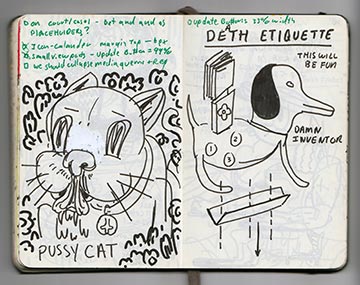 □ on count/casi - Dot and and as
PLACEHOLDERS?
Icon-calendar margin top - 6px
Small viewports - update button = 99%
□ we should collapse media queries + rep
PUSSY CAT
□ update Button is 33% wider
DEATH ETIQUETTE
THIS WILL
BE FUN
DAMN
INVENTOR
1
2
3